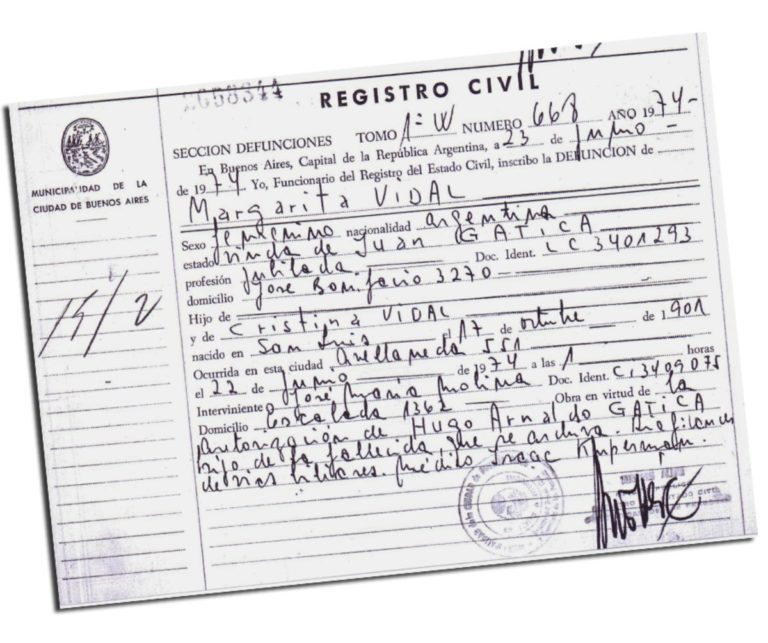 2658344
REGISTRO CIVIL
MUNICIPALIDAD DE LA
CIUDAD DE BUENOS AIRES
15/2
SECCION DEFUNCIONES TOMO 1º W NUMERO 668 AÑO 1974-
En Buenos Aires, Capital de la República Argentina, a 23 de Junio -
de 1974 Yo, Funcionario del Registro del Estado Civil, inscribo la DEFUNCION de
Margarita VIDAL
Sexo femenino nacionalidad argentina
estado viuda de Juan GATICA
profesión Jubilada Doc. Ident. LC 3401293
domicilio José Bonifacio 3270
Hijo de
y de Cristina VIDAL
nacido en San Luis el 17 de octubre de 1901
Ocurrida en esta ciudad Avellaneda 551
el 22 de Junio de 1974 a las 1 horas
Interviniente José María Molina Doc. Ident. C.I 3409075
Domicilio Escalada 1362 Obra en virtud de la
autorización de Hugo Arnaldo GATICA
hijo de la fallecida, que se archiva.
de vias biliares. Médico Isaac